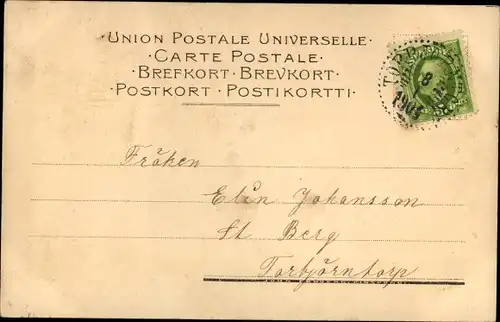 · UNION POSTALE UNIVERSELLE ·
· CARTE POSTALE ·
· BREFKORT · BREVKORT ·
· POSTKORT · POSTIKORTTI ·
8
1903
Fröken
Elin Johansson
St Berg
Torbjörntorp